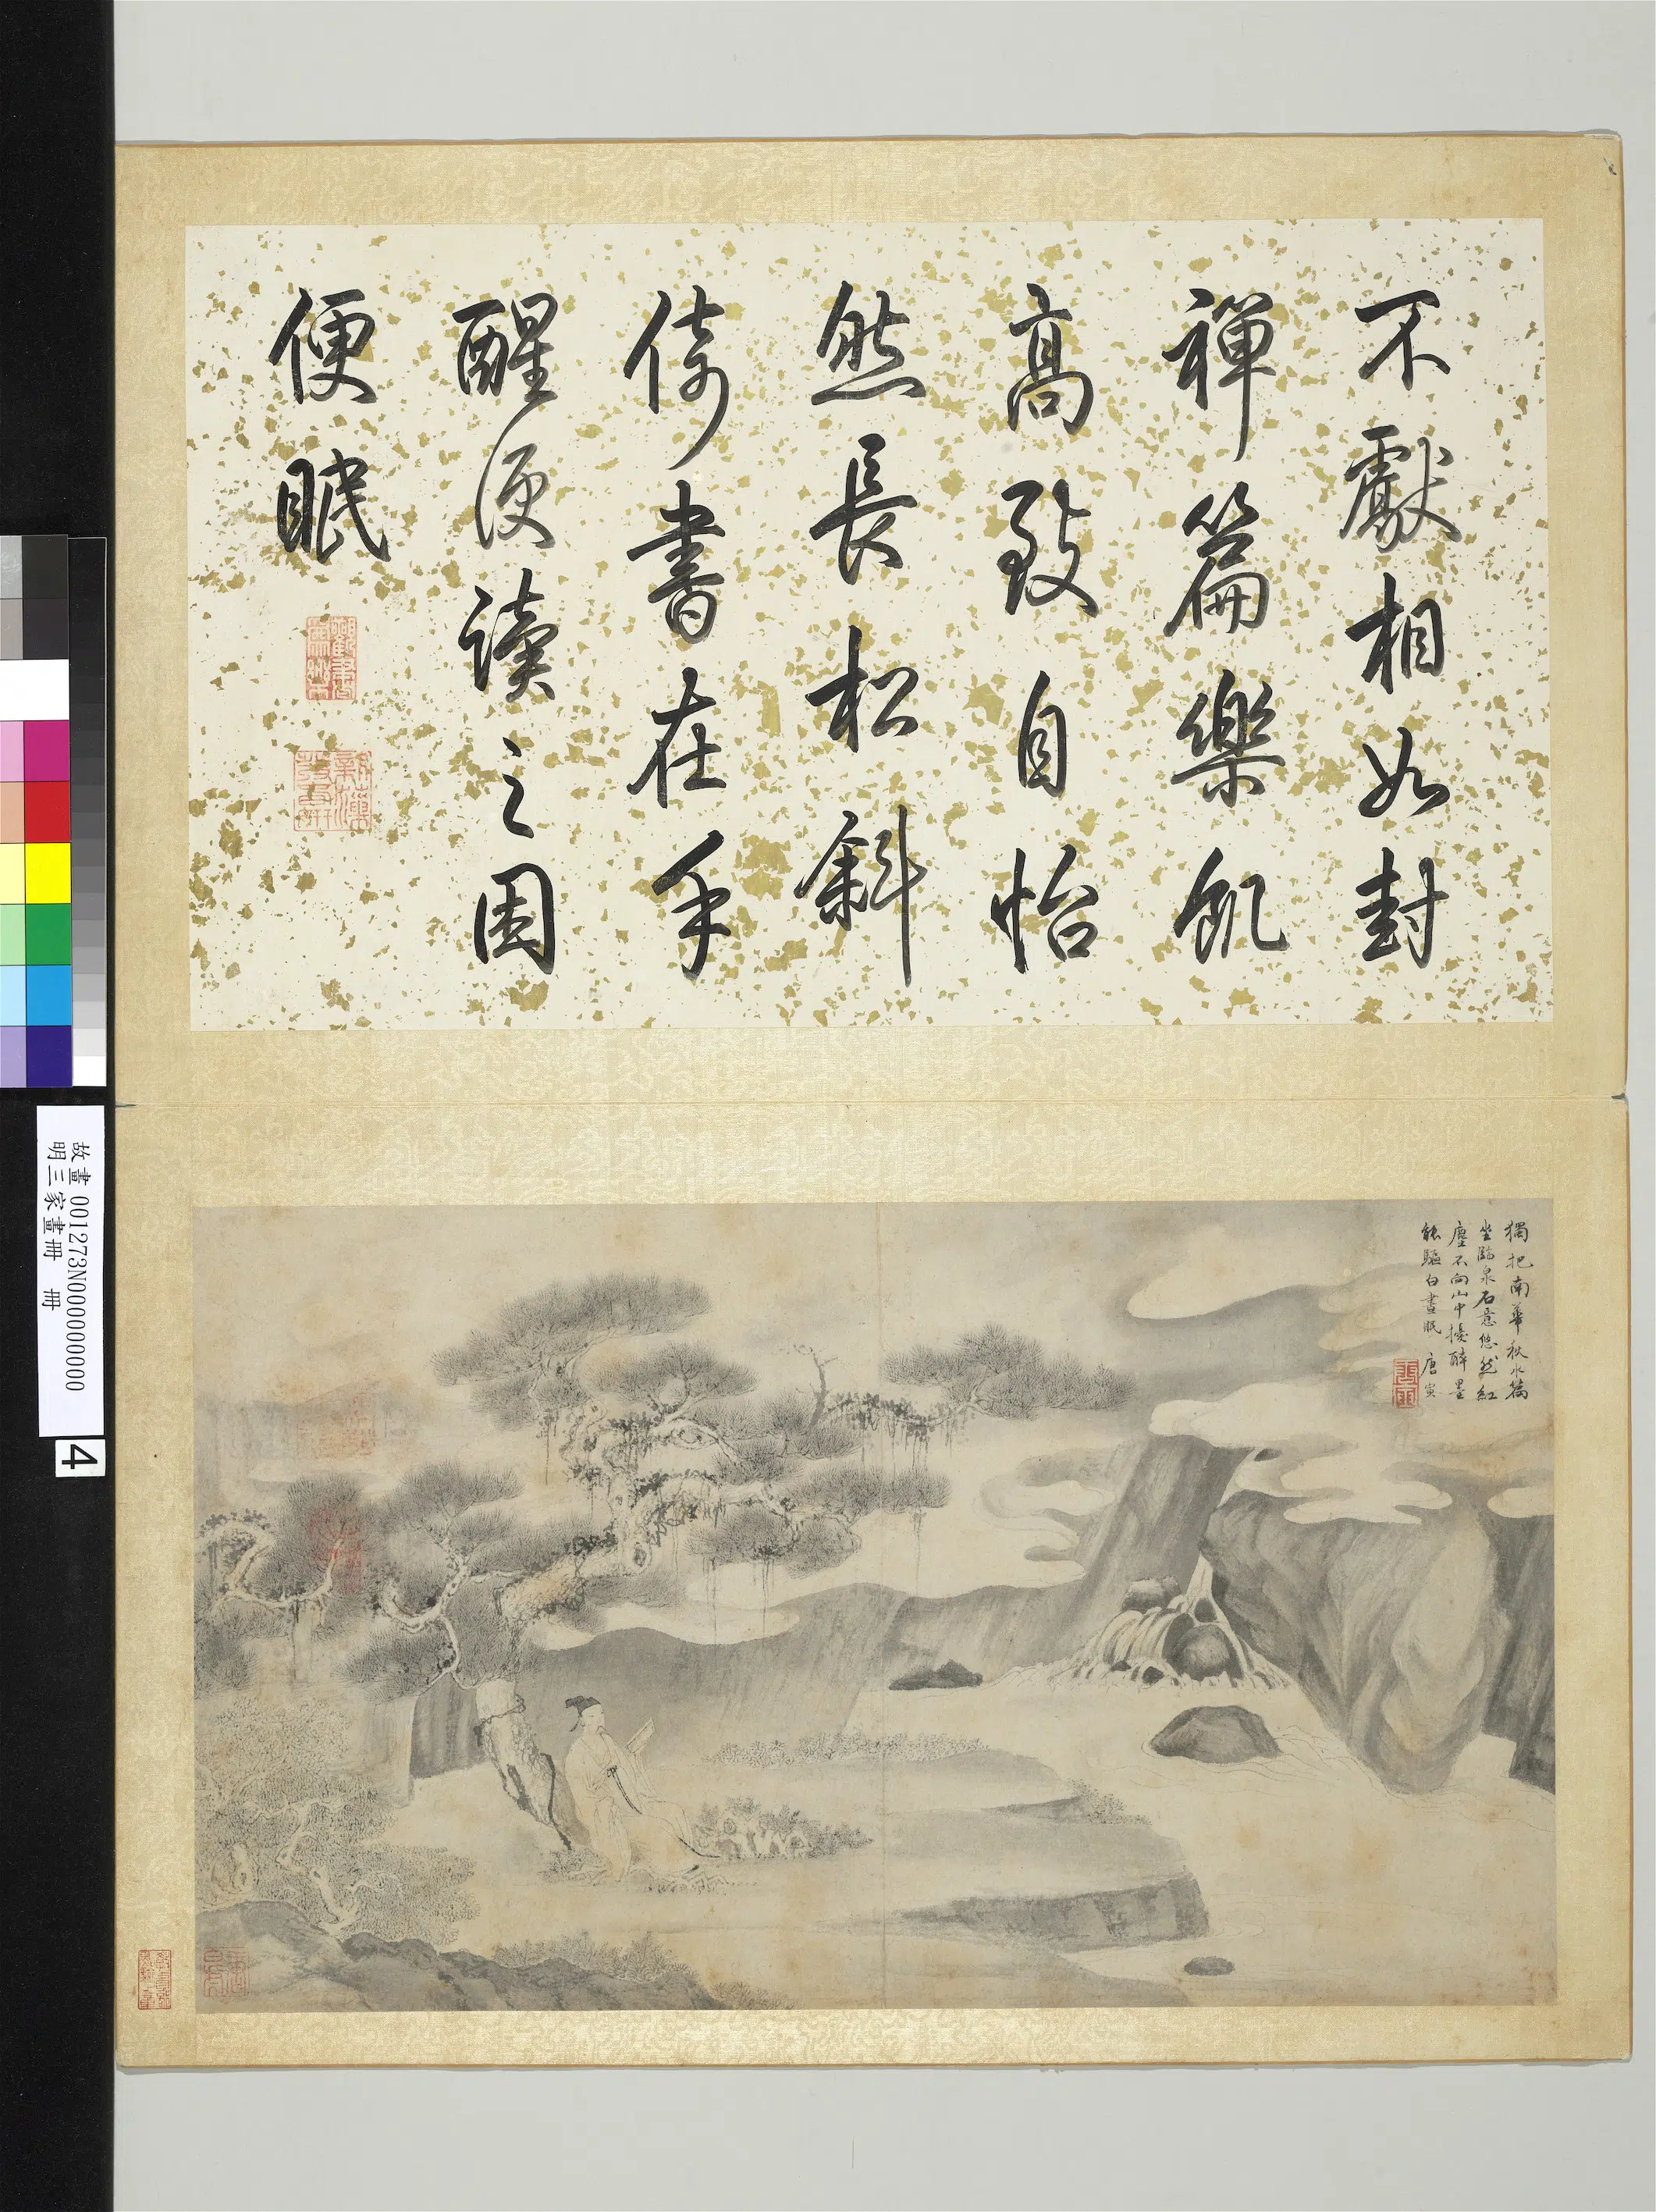 不獻相如封
禪篇樂飢
高致自怡
然長松斜
倚書在手
醒便讀之困
便眠
獨把南華秋水篇
坐臨泉石意悠然紅
塵不向山中擾醉墨
能驅白晝眠 唐寅
故畫 001273N000000000
明三家畫冊 冊
4